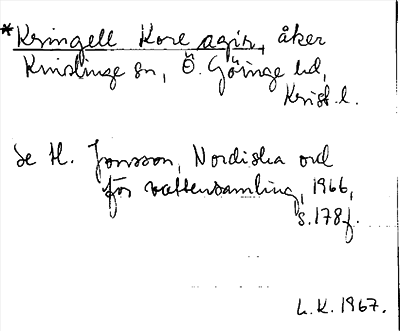 *Kringell Kore agir, åker
Knislinge sn, Ö. Göinge hd,
Krist. l.
Se H. Jonsson, Nordiska ord
för vattensamling, 1966,
s. 178 f.
L. K. 1967.